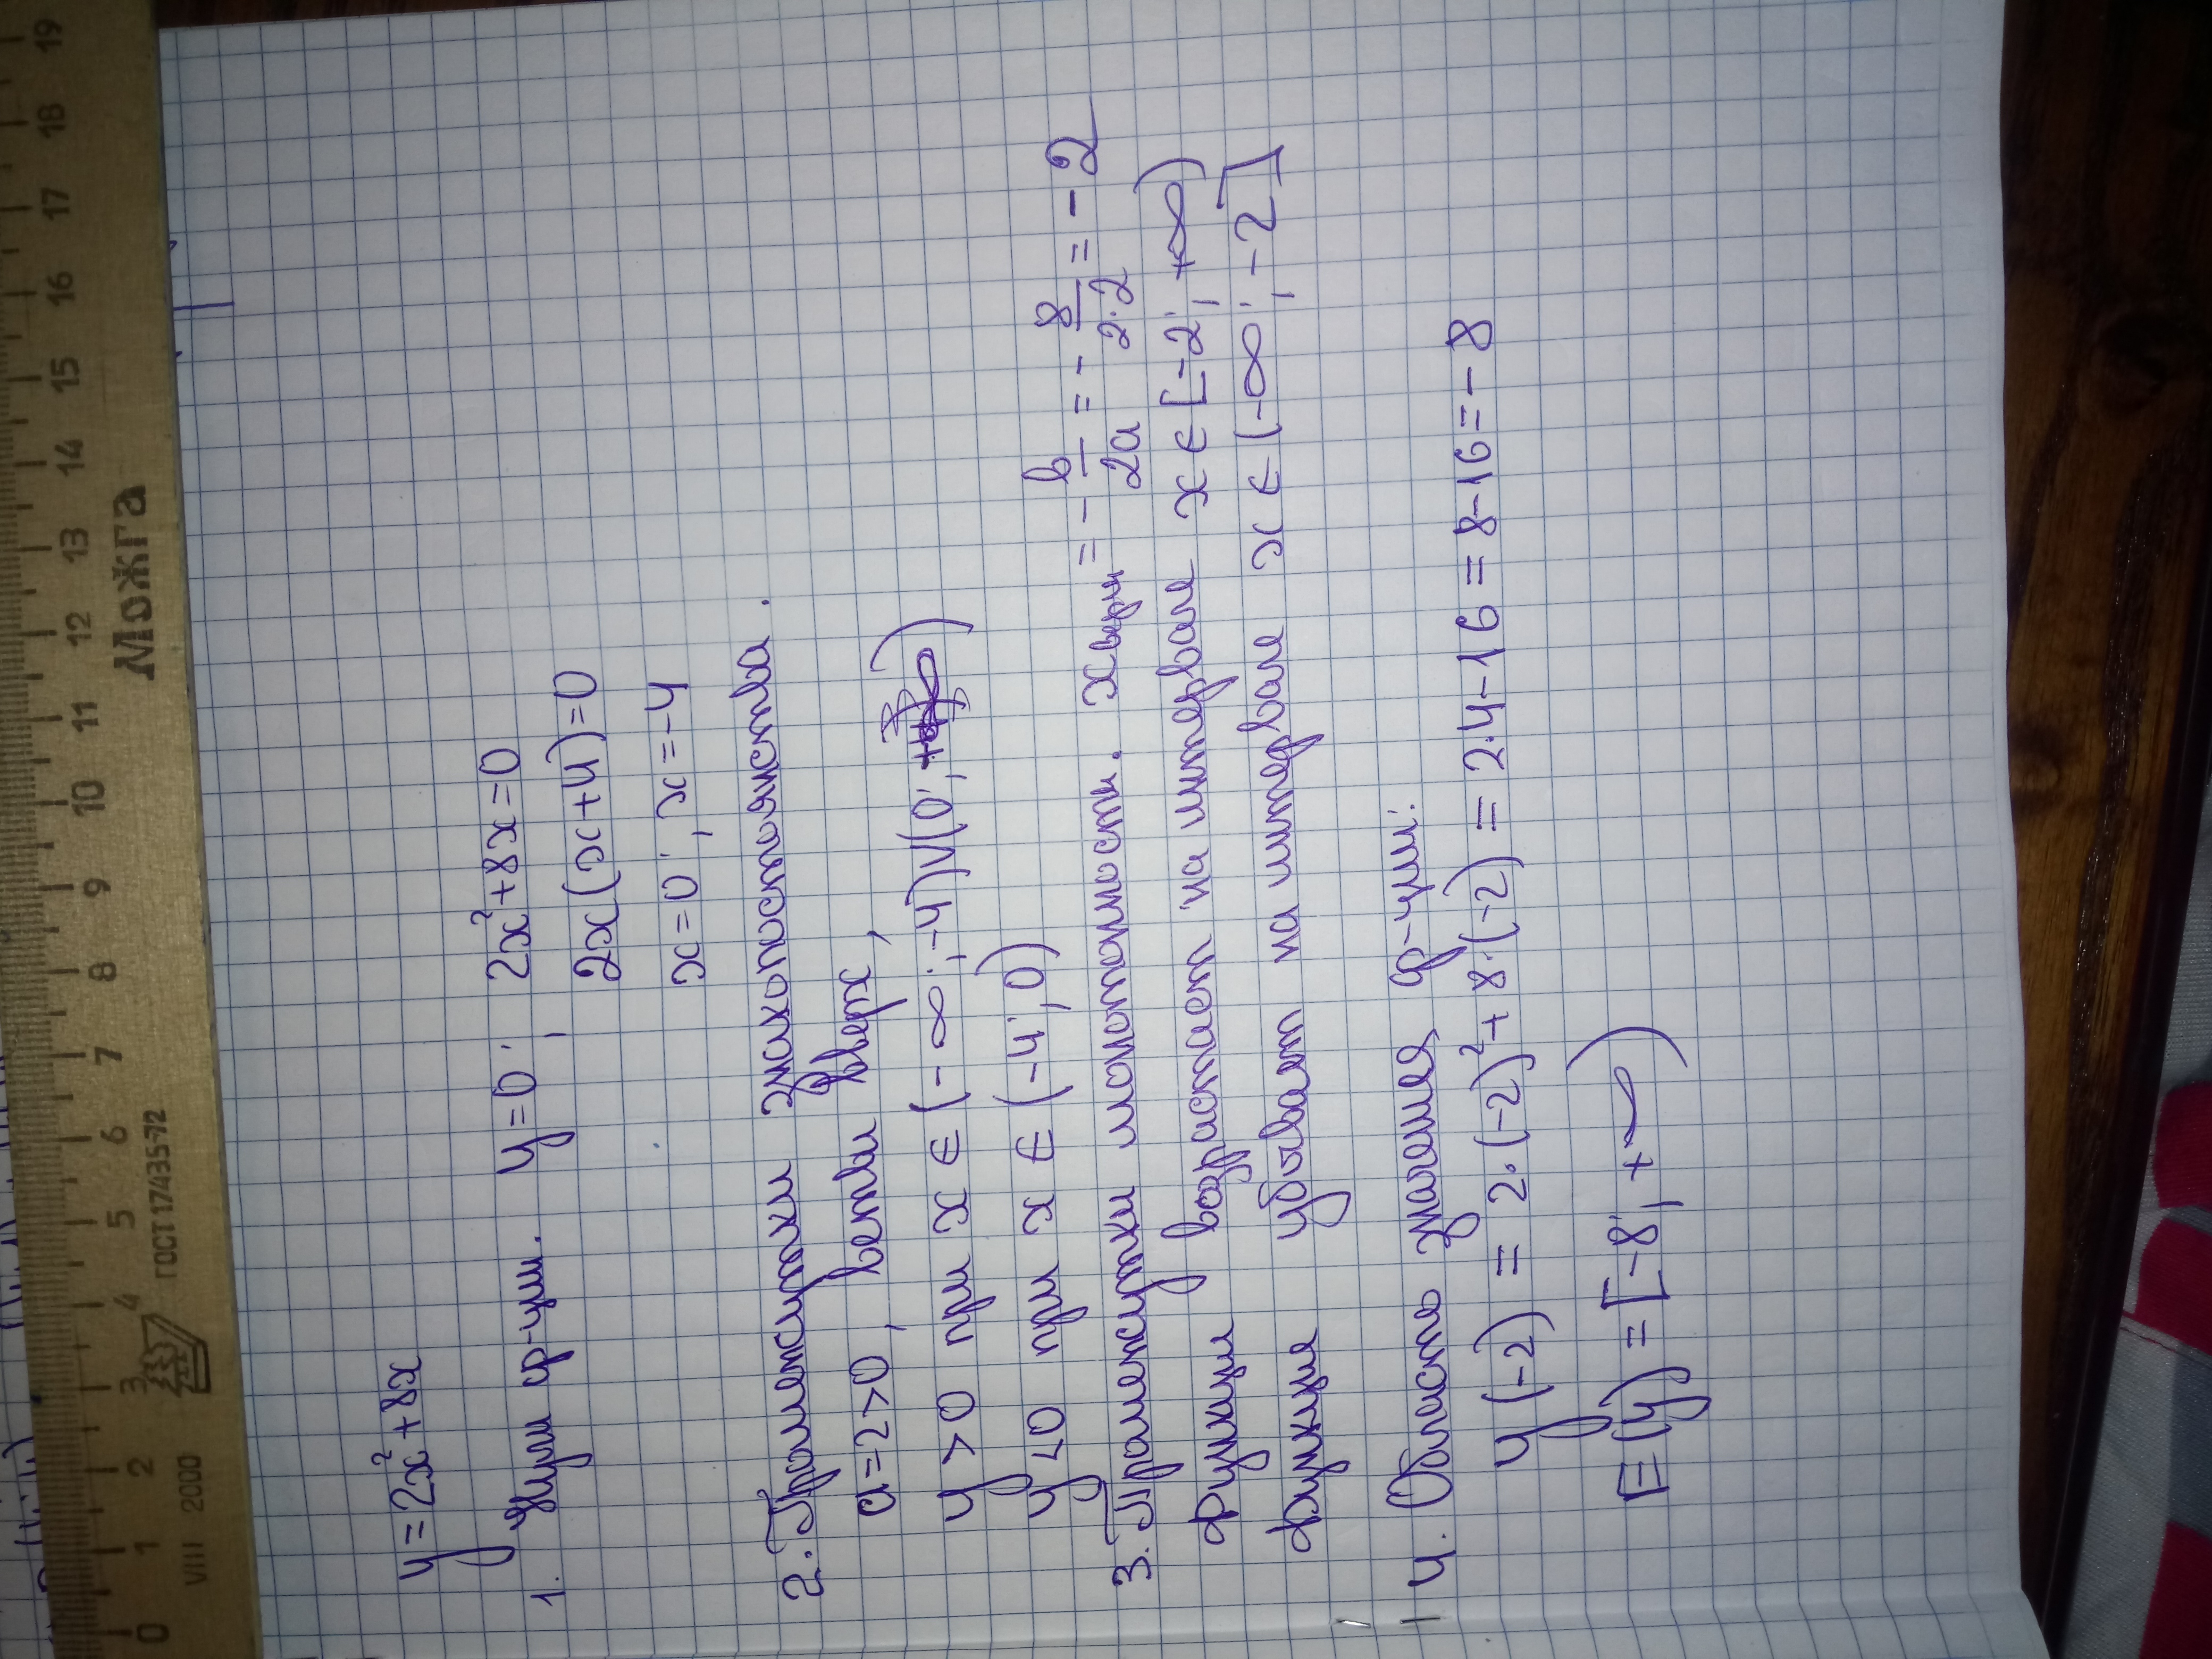 0 1 2 3 4 5 6 7 8 9 10 11 12 13 14 15 16 17 18 19
VIII 2000 ГОСТ 17435-72 Можга
y=2x²+8x
1. Нули ф-ции. y=0; 2x²+8x=0
2x(x+4)=0
x=0; x=-4
2. Промежутки знакопостоянства.
a=2>0, ветви вверх,
y>0 при x∈(-∞;-4)∪(0;+∞)
y<0 при x∈(-4;0)
3. Промежутки монотонности. xверш = -в/2a = -8/2·2 = -2
функция возрастает на интервале x∈[-2;+∞)
функция убывает на интервале x∈(-∞;-2]
4. Область значения ф-ции:
y(-2) = 2·(-2)²+8·(-2) = 2·4-16=8-16=-8
E(y)=[-8;+∞)